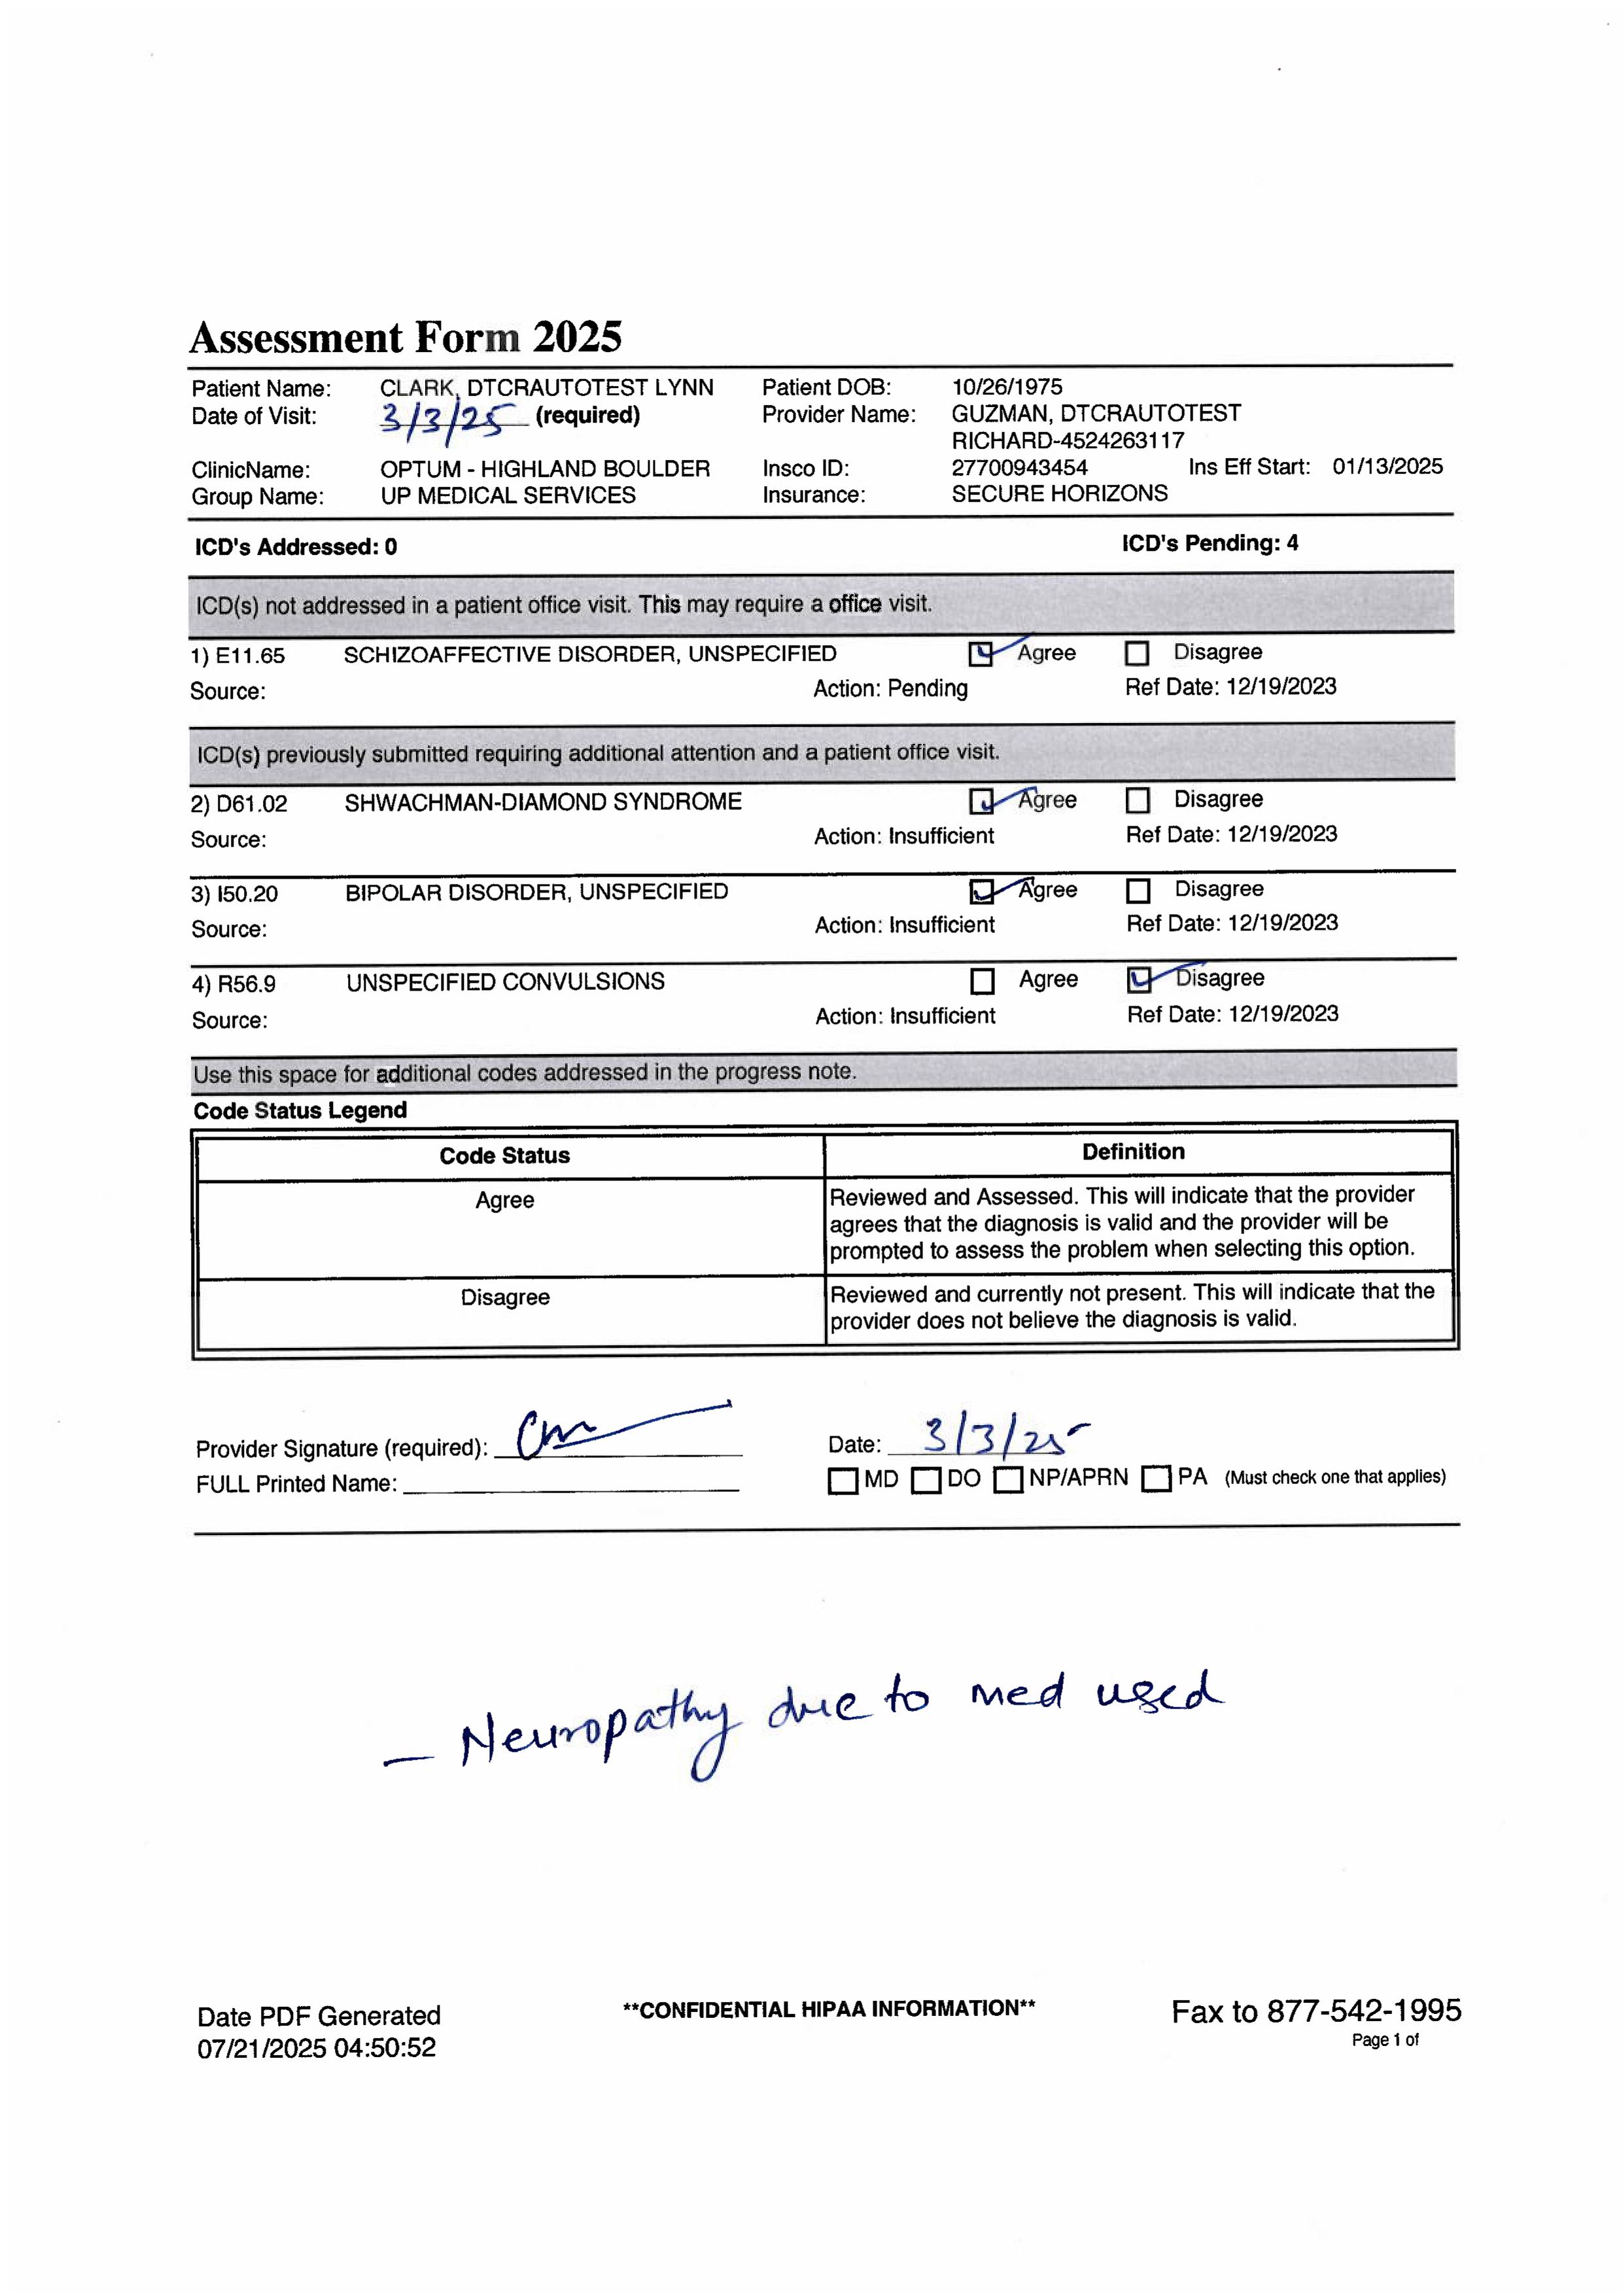 Assessment Form 2025
Patient Name: CLARK, DTCRAUTOTEST LYNN Patient DOB: 10/26/1975
Date of Visit: 3/3/25 (required) Provider Name: GUZMAN, DTCRAUTOTEST
RICHARD-4524263117
ClinicName: OPTUM - HIGHLAND BOULDER Insco ID: 27700943454 Ins Eff Start: 01/13/2025
Group Name: UP MEDICAL SERVICES Insurance: SECURE HORIZONS
ICD's Addressed: 0 ICD's Pending: 4
ICD(s) not addressed in a patient office visit. This may require a office visit.
1) E11.65 SCHIZOAFFECTIVE DISORDER, UNSPECIFIED Agree Disagree
Source: Action: Pending Ref Date: 12/19/2023
ICD(s) previously submitted requiring additional attention and a patient office visit.
2) D61.02 SHWACHMAN-DIAMOND SYNDROME Agree Disagree
Source: Action: Insufficient Ref Date: 12/19/2023
3) I50.20 BIPOLAR DISORDER, UNSPECIFIED Agree Disagree
Source: Action: Insufficient Ref Date: 12/19/2023
4) R56.9 UNSPECIFIED CONVULSIONS Agree Disagree
Source: Action: Insufficient Ref Date: 12/19/2023
Use this space for additional codes addressed in the progress note.
Code Status Legend
Code Status Definition
Agree Reviewed and Assessed. This will indicate that the provider
agrees that the diagnosis is valid and the provider will be
prompted to assess the problem when selecting this option.
Disagree Reviewed and currently not present. This will indicate that the
provider does not believe the diagnosis is valid.
Provider Signature (required): Date: 3/3/25
FULL Printed Name: MD DO NP/APRN PA (Must check one that applies)
— Neuropathy due to med used
Date PDF Generated **CONFIDENTIAL HIPAA INFORMATION** Fax to 877-542-1995
07/21/2025 04:50:52 Page 1 of